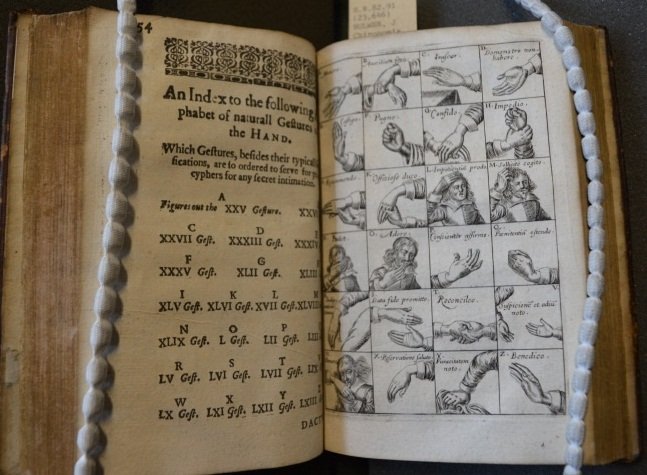 54
(23,646)
BULWER, J
An Index to the following
phabet of naturall Geſtures
the HAND.
Which Geſtures, beſides their typical
ſifications, are ſo ordered to ſerve for
cyphers for any ſecret intimation.
A
Figures out the XXV Geſture. XXV
C D E
XXVII Geſt. XXXIII Geſt. XXXIV
F G
XXXV Geſt. XLII Geſt. XLIII
I K L M
XLV Geſt. XLVI Geſt. XVII Geſt. XLVIII
N O P
XLIX Geſt. L Geſt. LII Geſt. LIII
R S T
LV Geſt. LVI Geſt. LVII Geſt. LIX
W X Y Z
LX Geſt. LXI Geſt. LXII Geſt. LXIII
DACT
C. D. Demonstro non
habere.
Pugno. G. Confido. H. Impedio.
K. Officiose duco. L. Impatientiam prodo. M. Sollicite cogito.
O. Adoro. Conscienter affirmo. Q. Pœnitentiam ostendo.
Data fide promitto. Reconcilio. Suspicionem et odium
noto.
X. Reservatione saluto. Y. Furacitatem
noto. Z. Benedico.